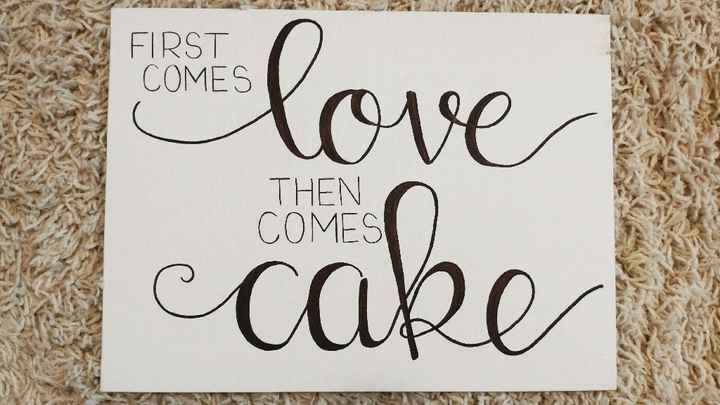 FIRST
COMES
love
THEN
COMES
cake